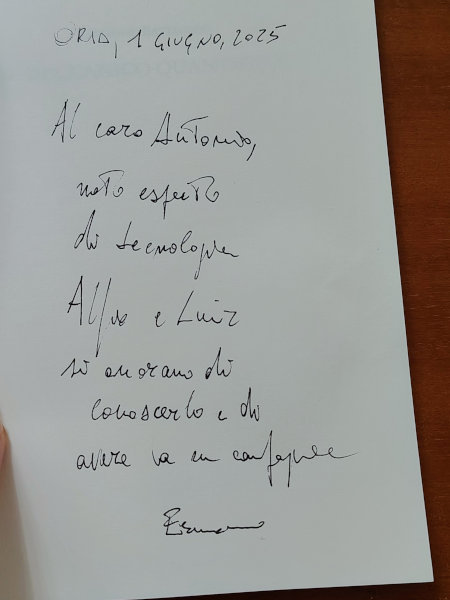 ORIA, 1 GIUGNO, 2025
Al caro Antonio,
noto esperto
di tecnologia
Alfio e Luiz
si onorano di
conoscerlo e di
avere